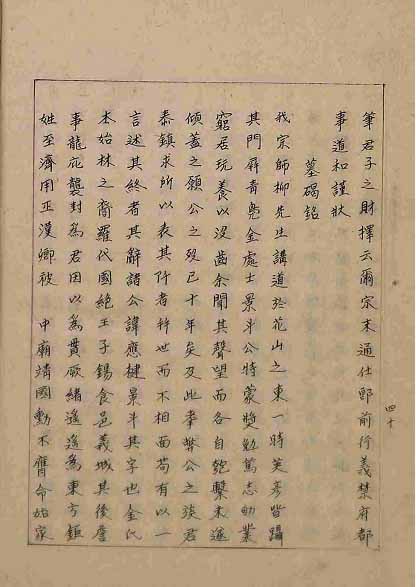 筆君子之財擇云爾宗末通仕郎前行義禁府都
事道和謹狀
墓碣銘
我宗師柳先生講道於花山之東一時英彥皆躡
其門屏青鳧金處士景斗公特蒙獎勉篤志劬業
窮居玩養以沒齒余聞其聲望而各自匏繫未遂
傾蓋之願公之歿已十年矣及此奉弊公之族君
泰鎮求所以表其阡者梓世而不相面苟有以一
言述其終者其辭諸公諱應楗景斗其字也金氏
本始林之裔羅代國絶王子錫食邑義城其後詹
事龍庇襲封為君因以為貫厥緒遙遙為東方鉅
姓至濟用正漢卿被 中廟靖國勳不膺命始家
四十